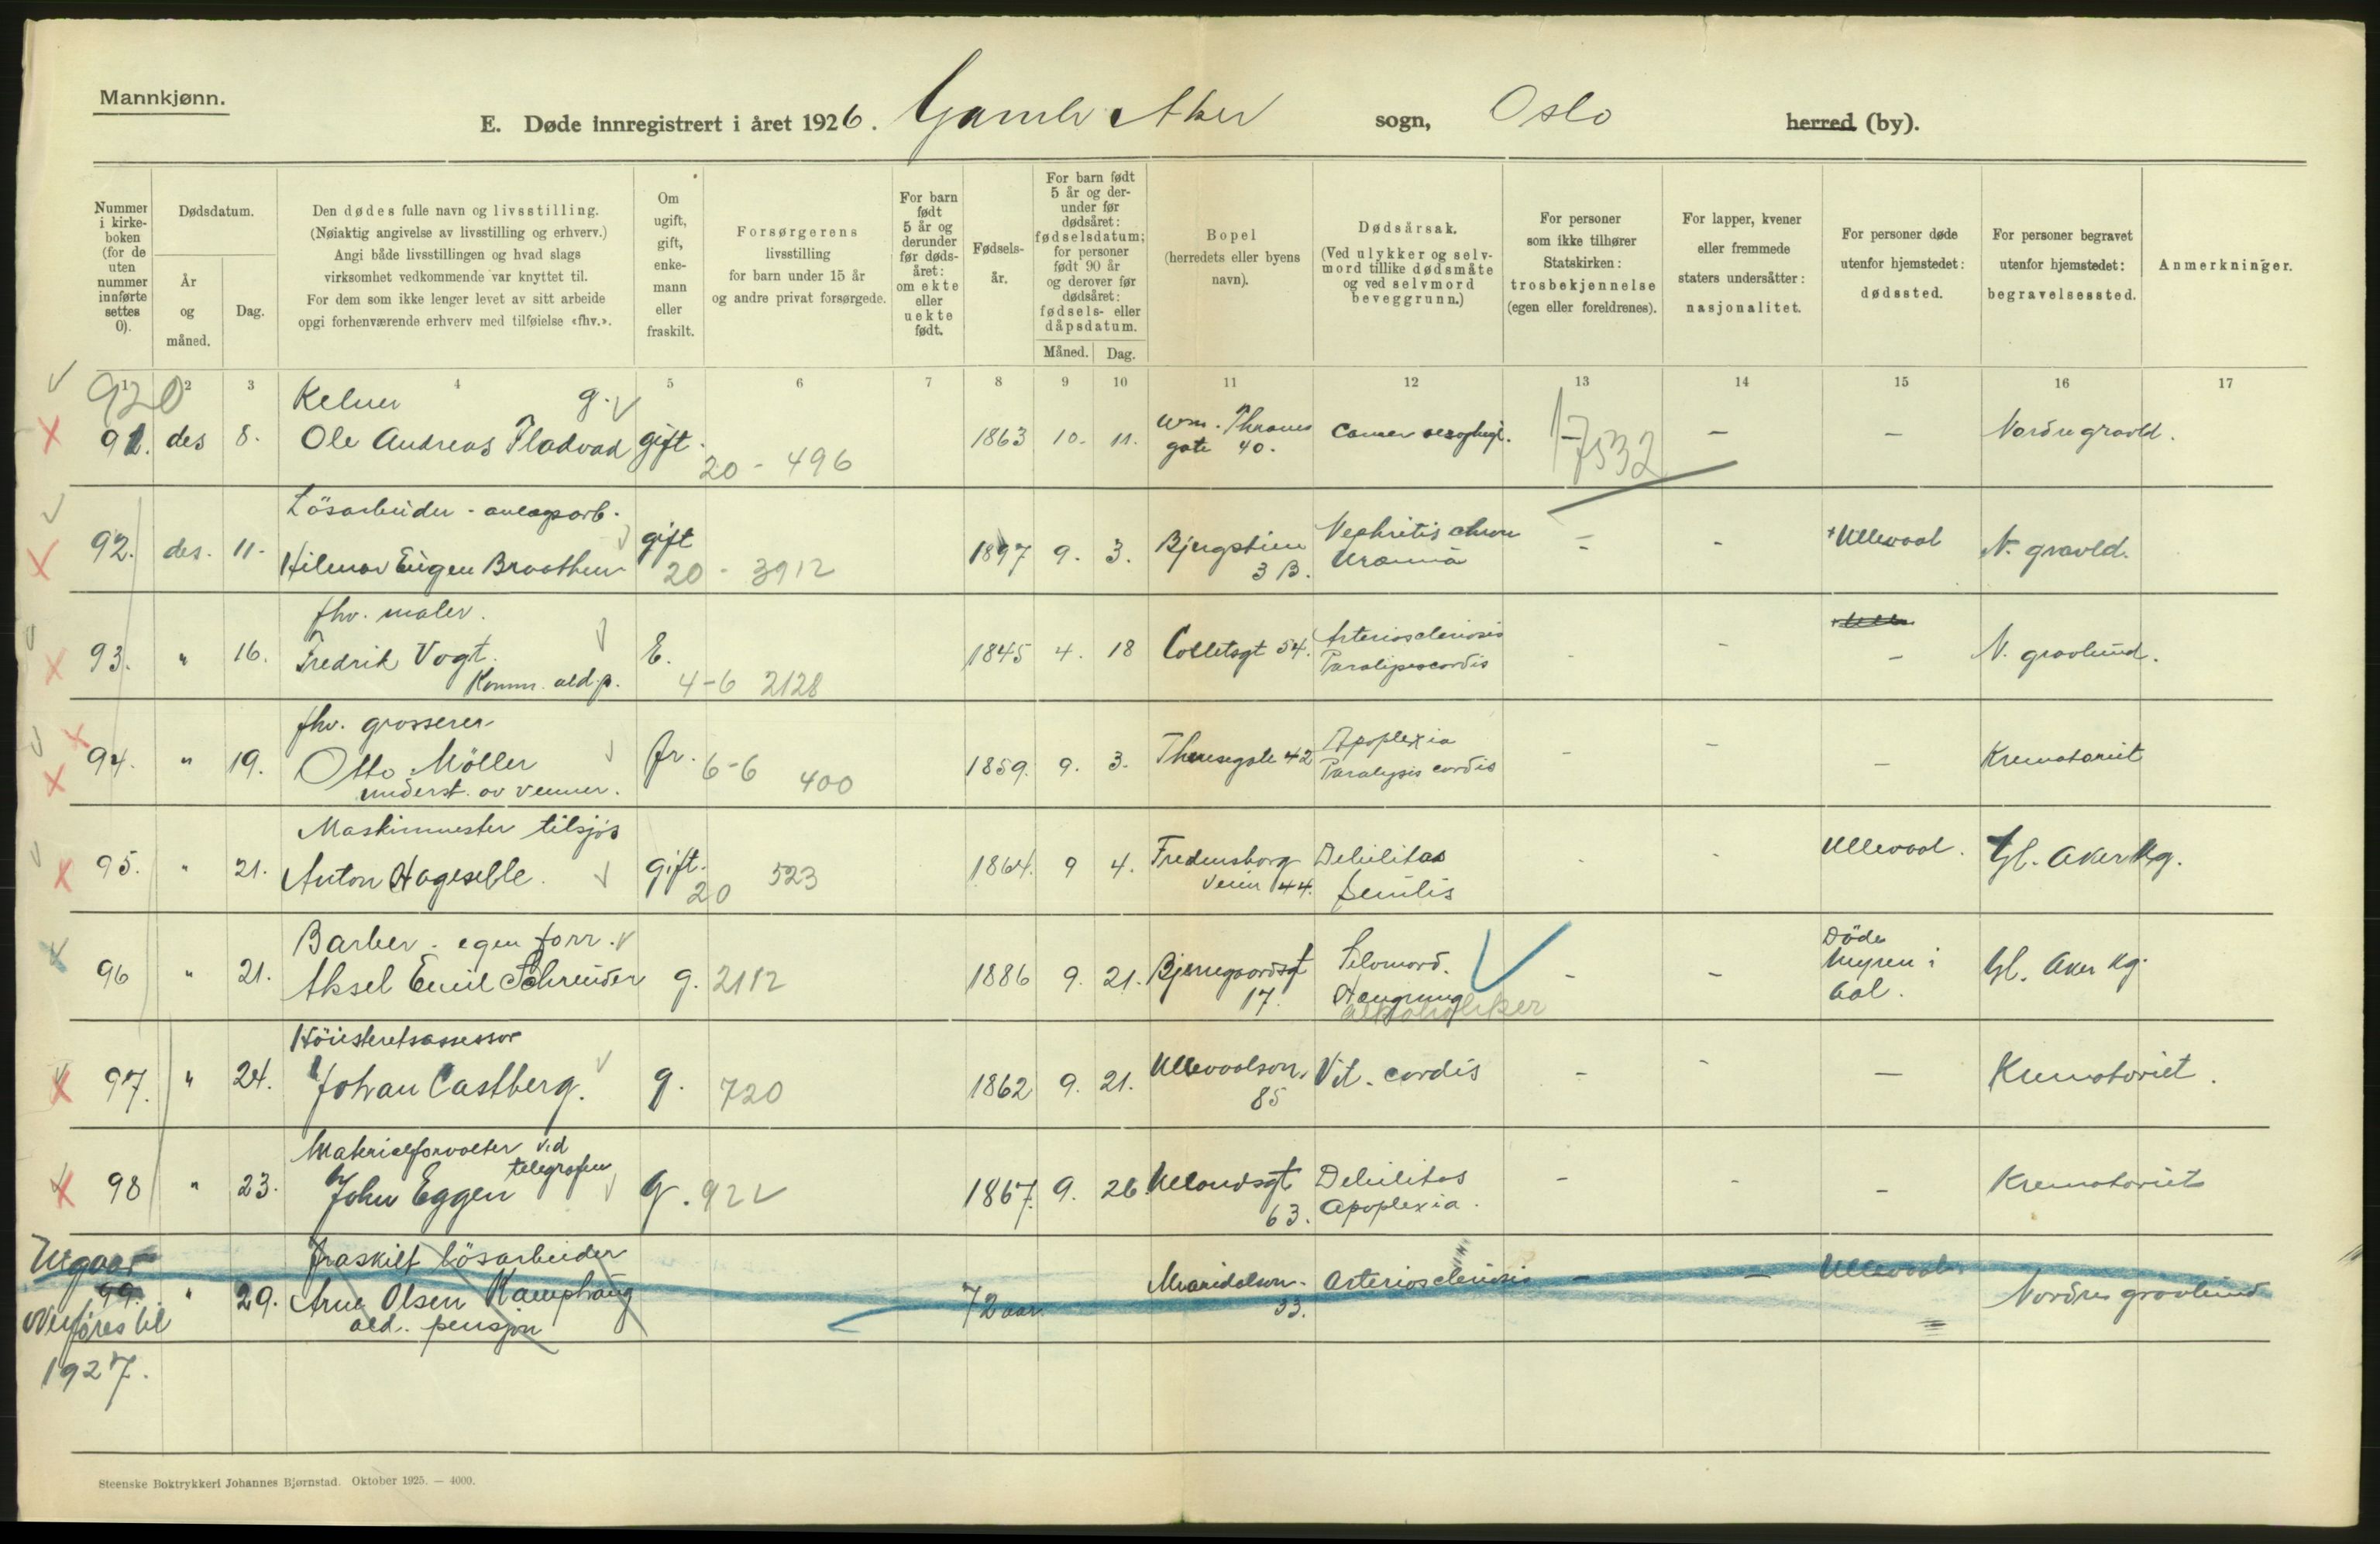 Mannkjønn.
E. Døde innregistrert i året 1926. Gamle Aker sogn, Oslo herred (by).
Nummer i kirkeboken (for de uten nummer innførte settes 0).
Dødsdatum.
År og måned.
Dag.
Den dødes fulle navn og livsstilling.
(Nøiaktig angivelse av livsstilling og erhverv.)
Angi både livsstillingen og hvad slags
virksomhet vedkommende var knyttet til.
For dem som ikke lenger levet av sitt arbeide
opgi forhenværende erhverv med tilføielse «fhv.».
Om ugift, gift, enkemann eller fraskilt.
Forsørgerens
livsstilling
for barn under 15 år
og andre privat forsørgede.
For barn født 5 år og derunder før dødsåret: om ekte eller uekte født.
Fødselsår.
For barn født 5 år og derunder før dødsåret: fødselsdatum; for personer født 90 år og derover før dødsåret: fødsels- eller dåpsdatum.
Måned. Dag.
Bopel
(herredets eller byens
navn).
Dødsårsak.
(Ved ulykker og selvmord tillike dødsmåte og ved selvmord beveggrunn.)
For personer
som ikke tilhører
Statskirken:
trosbekjennelse
(egen eller foreldrenes).
For lapper, kvener
eller fremmede
staters undersåtter:
nasjonalitet.
For personer døde
utenfor hjemstedet:
dødssted.
For personer begravet
utenfor hjemstedet:
begravelsessted.
Anmerkninger.
1 2 3 4 5 6 7 8 9 10 11 12 13 14 15 16 17
920
Kelner g.
91. des 8. Ole Andreas Fladvad gift. 20 - 496 1863 10. 11. Wm. Thranes gate 40. Cancer oesophagi. - 17532 - - Nordre gravld.
Lösarbeider - anlægsarb.
92. des. 11. Hilmar Eugen Braathen gift 20 - 3912 1897 9. 3. Bjergstien 3 B. Nephritis chron Uræmia - - + Ullevaal N. gravld.
fhv. maler.
93. " 16. Fredrik Vogt. E. 4-6 2128 1845 4. 18 Colletsgt 54. Arteriosclerosis Paralysis cordis - - - N. gravlund.
Komm. ald.p.
fhv. grosserer
94. " 19. Otto Möller fr. 6-6 400 1859. 9. 3. Theresegate 42 Apoplexia Paralysis cordis - - - Krematoriet
underst. av venner.
Maskinmester tilsjös
95. " 21. Anton Hageselle. gift. 20 523 1864. 9 4. Fredensborg veien 44. Debilitas senilis - - Ullevaal. Gl. Aker kg.
Barber - egen forr.
96 " 21. Aksel Emil Schreuder g. 2112 1886 9. 21. Bjerregaardsgt 17. Selvmord. Hængning alkoholiker - - Döde Myren i Aal. Gl. Aker kg.
Höiesteretsassessor
97. " 24. Johan Castberg. g. 720 1862 9. 21. Ullevaalsvn. 85 Vit. cordis - - - Krematoriet.
Materialforvalter ved telegrafen
98 " 23. John Eggen g. 922 1867. 9. 26. Uelandsgt 63. Debilitas Apoplexia. - - - Krematoriet
Utgaar
fraskilt lösarbeider
99. " 29. Arne Olsen Kamphaug 72 aar. Maridalsvn. 33. Arteriosclerosis - - Ullevaal Nordre gravlund
ald. pensjon
Overföres til
1927.
Steenske Boktrykkeri Johannes Bjørnstad. Oktober 1925. — 4000.